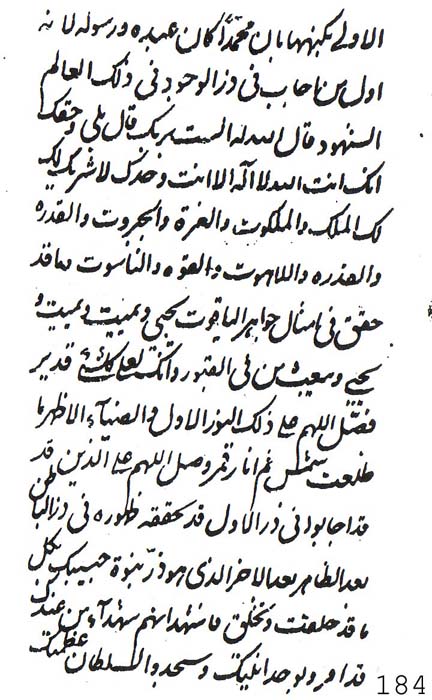 الاولى بكينونها بان محمداً كان عبده ورسوله لانه
اول من اجاب فى ذر الوجود فى ذلك العالم
الشهود قال الله له الست بربك قال بلى وحقك
انك انت الله لا اله الا انت وحدك لا شريك لك
لك الملك والملكوت والعزة والجبروت والقدره
واللاهوت والقوه والناسوت وما قد
حقق فى امثال جواهر الياقوت يحيى ويميت ويميت و
يحيى ويبعث من فى القبور وانك لعلى كل شئ قدير
فصل اللهم على ذلك النور الاول والضيآء الاظهر ما
طلعت شمس ثم انار قمر وصل اللهم على الذين قد
قد اجابوا فى ذر الاول قد تحققه ظهوره فى ذر الباطن
بعد الظاهر بعد الاخر الذى هو ذر نبوة حبيبك بكل
ما قد خلقت وتخلق فاشهد انهم شهدآء من عندك
قد اقروا بوحدانيتك وسجدوا لسلطان عظمتك
184